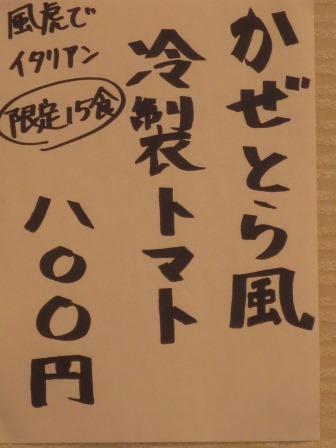 かぜとら風
冷製トマト
風虎で
イタリアン
限定15食
八〇〇円